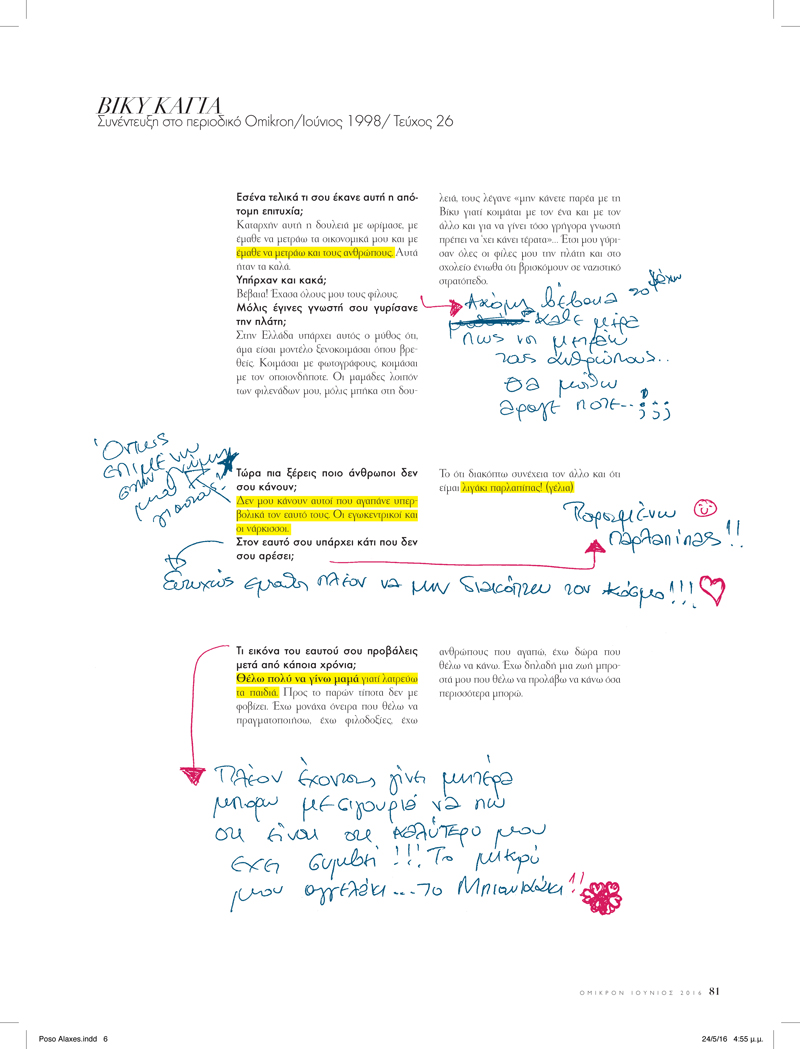 ΒΙΚΥ ΚΑΓΙΑ
Συνέντευξη στο περιοδικό Omikron/Ιούνιος 1998/ Τεύχος 26
Εσένα τελικά τι σου έκανε αυτή η από-
τομη επιτυχία;
Καταρχήν αυτή η δουλειά με ωρίμασε, με
έμαθε να μετράω τα οικονομικά μου και με
έμαθε να μετράω και τους ανθρώπους. Αυτά
ήταν τα καλά.
Υπήρχαν και κακά;
Βέβαια! Έχασα όλους μου τους φίλους.
Μόλις έγινες γνωστή σου γυρίσανε
την πλάτη;
Στην Ελλάδα υπάρχει αυτός ο μύθος ότι,
άμα είσαι μοντέλο ξενοκοιμάσαι όπου βρε-
θείς. Κοιμάσαι με φωτογράφους, κοιμάσαι
με τον οποιονδήποτε. Οι μαμάδες λοιπόν
των φιλενάδων μου, μόλις μπήκα στη δου-
λειά, τους λέγανε «μην κάνετε παρέα με τη
Βίκυ γιατί κοιμάται με τον ένα και με τον
άλλο και για να γίνει τόσο γρήγορα γνωστή
πρέπει να 'χει κάνει τέρατα»... Έτσι μου γύρι-
σαν όλες οι φίλες μου την πλάτη και στο
σχολείο ένιωθα ότι βρισκόμουν σε ναζιστικό
στρατόπεδο.
Ακόμη βέβαια το ψάχνω
κάθε μέρα
πως να μετράω
τους ανθρώπους..
Θα μάθω
άραγε ποτέ...;;;
Όπως
επιμένω
στην
μια
Τώρα πια ξέρεις ποιο άνθρωποι δεν
σου κάνουν;
Δεν μου κάνουν αυτοί που αγαπάνε υπερ-
βολικά τον εαυτό τους. Οι εγωκεντρικοί και
οι νάρκισσοι.
Στον εαυτό σου υπάρχει κάτι που δεν
σου αρέσει;
Το ότι διακόπτω συνέχεια τον άλλο και ότι
είμαι λιγάκι παρλαπίπας! (γέλια)
Παραμένω
παρλαπίπας!!
Ευτυχώς έμαθα πλέον να μην διακόπτω τον κόσμο!!!
Τι εικόνα του εαυτού σου προβάλεις
μετά από κάποια χρόνια;
Θέλω πολύ να γίνω μαμά γιατί λατρεύω
τα παιδιά. Προς το παρών τίποτα δεν με
φοβίζει. Έχω μονάχα όνειρα που θέλω να
πραγματοποιήσω, έχω φιλοδοξίες, έχω
ανθρώπους που αγαπώ, έχω δώρα που
θέλω να κάνω. Έχω δηλαδή μια ζωή μπρο-
στά μου που θέλω να προλάβω να κάνω όσα
περισσότερα μπορώ.
Πλέον έχοντας γίνει μητέρα
μπορώ με σιγουριά να πω
ότι είναι ότι καλύτερο μου
έχει συμβεί!!! Το μικρό
μου αγγελάκι...το Μπιανκάκι!!
ΟΜΙΚΡΟΝ ΙΟΥΝΙΟΣ 2016 81
Poso Alaxes.indd 6
24/5/16 4:55 μ.μ.